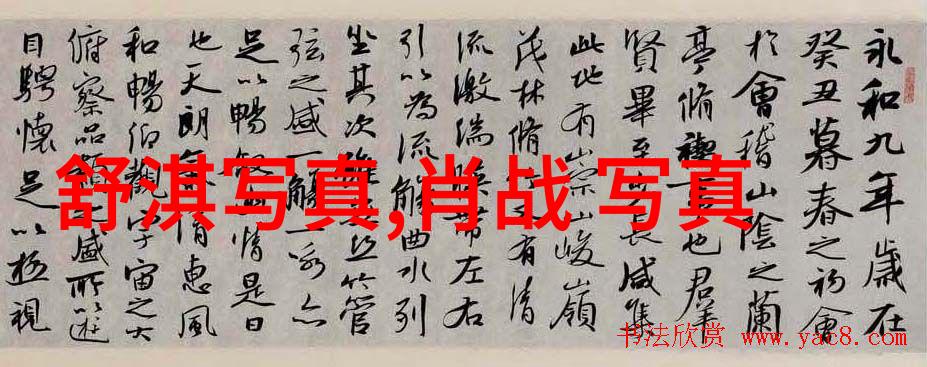 永和九年歲在
癸丑暮春之初會
於會稽山陰之蘭
亭脩禊事也羣
賢畢至少長咸集
此地有崇山峻嶺
茂林脩竹又有清
流激湍暎帶左右
引以為流觴曲水列
坐其次絲竹管
弦之盛一觴一詠亦
足以暢敘情是日
也天朗氣清惠風
和暢仰觀宇宙之大
俯察品類盛所以遊
目騁懷足以極視
舒淇写真,肖战 写真
书法欣赏 www.yac8.com